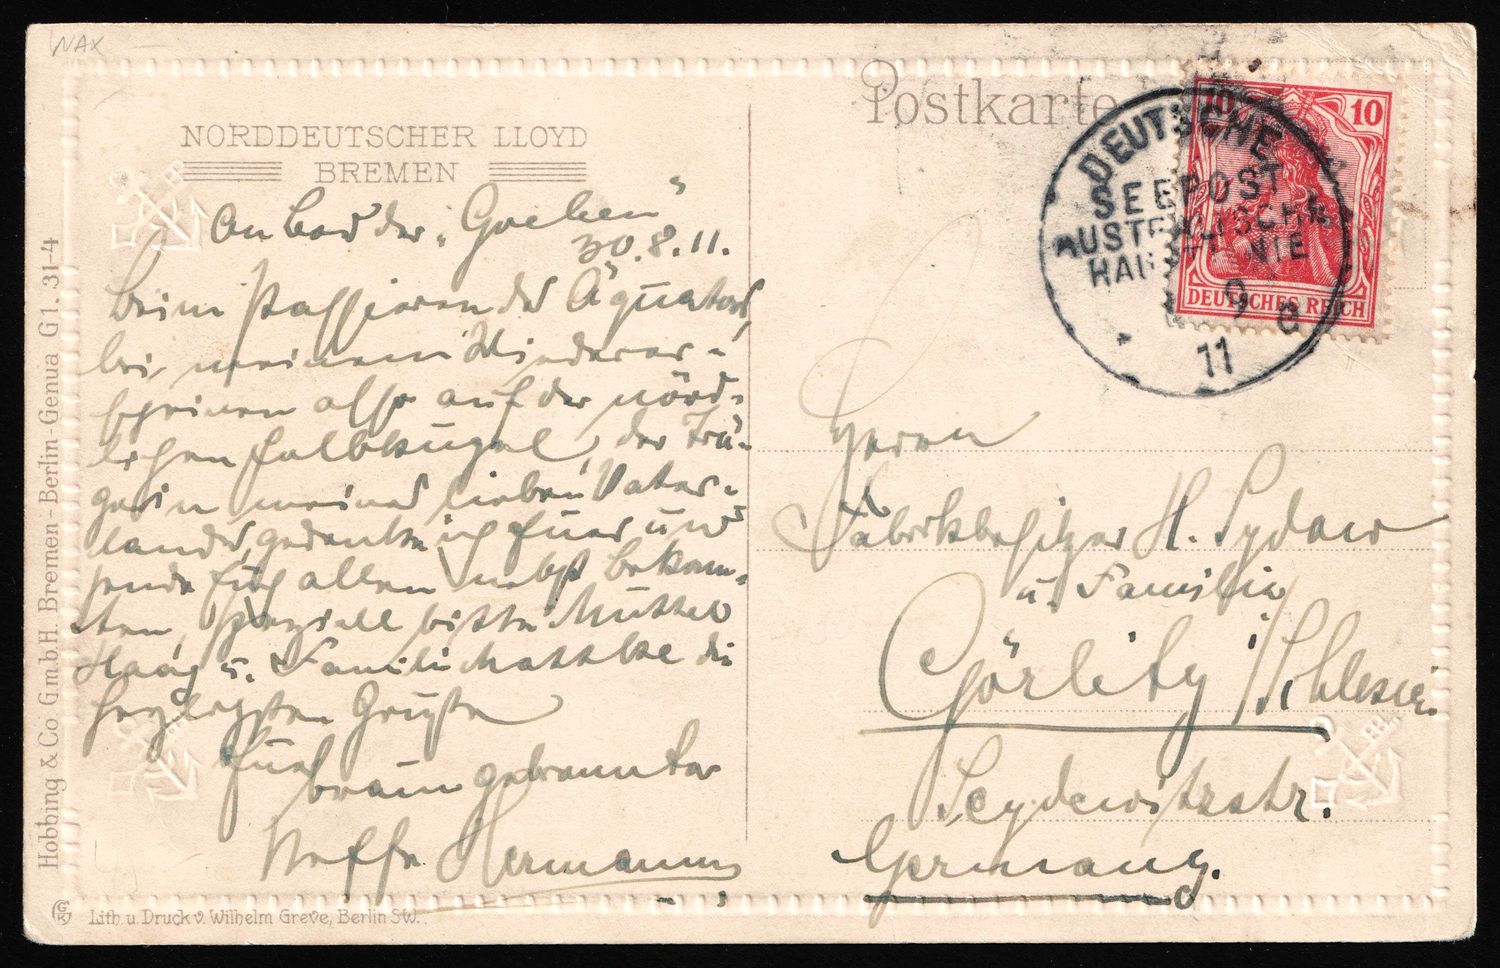 NAX
NORDDEUTSCHER LLOYD
BREMEN
Postkarte
10 10
DEUTSCHES REICH
DEUTSCHE
SEEPOST
AUSTRALISCHE
HAUPTLINIE
9 8
11
An Bord der „Goeben"
30.8.11.
Beim Passieren des Äquators,
bei meinem Wiederer-
scheinen also auf der nörd-
lichen Halbkugel, der Trä-
gerin meines lieben Vater-
landes, gedenke ich Euer und
sende Euch allen nebst Bekann-
ten, speziell bitte Mutter
Haag u. Familie die
herzlichsten Grüße
Euer
braun gebrannter
Neffe Hermann
Herrn
Fabrikbesitzer H. Sydow
u. Familie
Görlitz / Schlesien
Seydewitzstr.
Germany.
Hobbing & Co. G.m.b.H. Bremen-Berlin-Genua G1. 31-4
Lith. u. Druck v. Wilhelm Greve, Berlin SW.